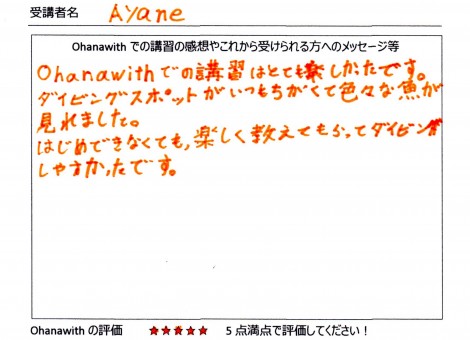 受講者名 Ayane
Ohanawith での講習の感想やこれから受けられる方へのメッセージ等
Ohanawithでの講習はとても楽しかたです。
ダイビングスポットがいつもちがくて色々な魚が
見れました。
はじめできなくても,楽しく教えてもらってダイビング
しやすかったです。
Ohanawith の評価 ★★★★★ 5 点満点で評価してください！